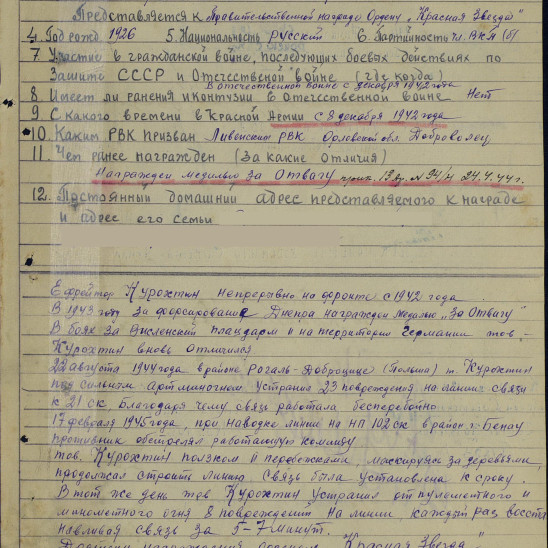 Представляется к Правительственной награде Ордену "Красная Звезда"
4. Год рожд. 1926 5. Национальность Русский 6. Партийность чл. ВКП(б)
7 Участие в гражданской войне, последующих боевых действиях по
защите СССР и Отечественой войне (где когда)
в отечественной войне с декабря 1942 года
8 Имеет ли ранения и контузии в отечественной войне Нет
9 С какого времени в Красной Армии с 8 декабря 1942 года
10. Каким РВК призван Ливенским РВК Орловской обл. Доброволец
11. Чем ранее награжден (за какие отличия)
Награжден медалью за Отвагу 24.4.44 г.
12. Постоянный домашний адрес представляемого к награде
и адрес его семьи
Ефрейтор Курохтин непрерывно на фронте с 1942 года
В 1943 году за форсирование Днепра награжден медалью "За Отвагу"
В боях за Висленский плацдарм и на территории Германии тов.
Курохтин вновь отличился
22 августа 1944 года в районе (Польша) т. Курохтин
под сильным арт миногнем устранил 23 повреждения на линии связи
к 21 ск, благодаря чему связь работала бесперебойно
17 февраля 1945 года, при наводке линии на НП 102 ск в район г. Бенау
противник обстрелял работающую команду
тов. Курохтин ползком и перебежками, маскируясь за деревьями,
продолжал строить линию связь была установлена к сроку.
В тот же день тов Курохтин устранил от пулеметного и
минометного огня 8 повреждений на линии каждый раз восста
навливая связь за 5-7 минут.
"Красная Звезда"